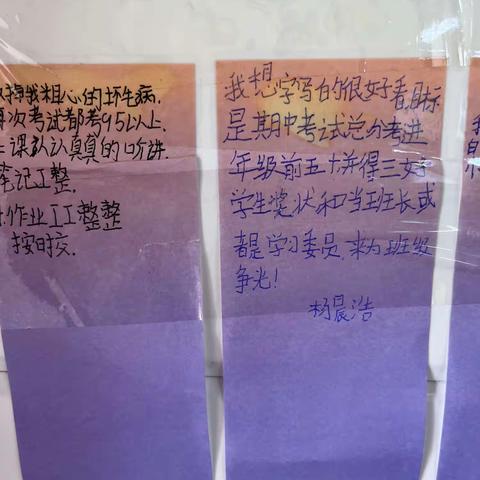 掉我粗心的坏毛病.
次考试都考95以上
课认认真真的听讲.
笔记工整.
作业工工整整
按时交.
我想字写的很好看,目标
是期中考试总分考进
年级前五十并得三好
学生奖状和当班长或
者是学习委员,来为班级
争光!
杨晨浩